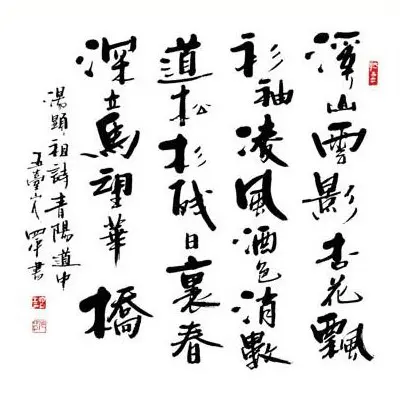 溪山雲影杏花飄
衫袖凌風酒色消數
道松杉殘日裏春
深立馬望華橋
湯顯祖詩青陽道中
五臺 書